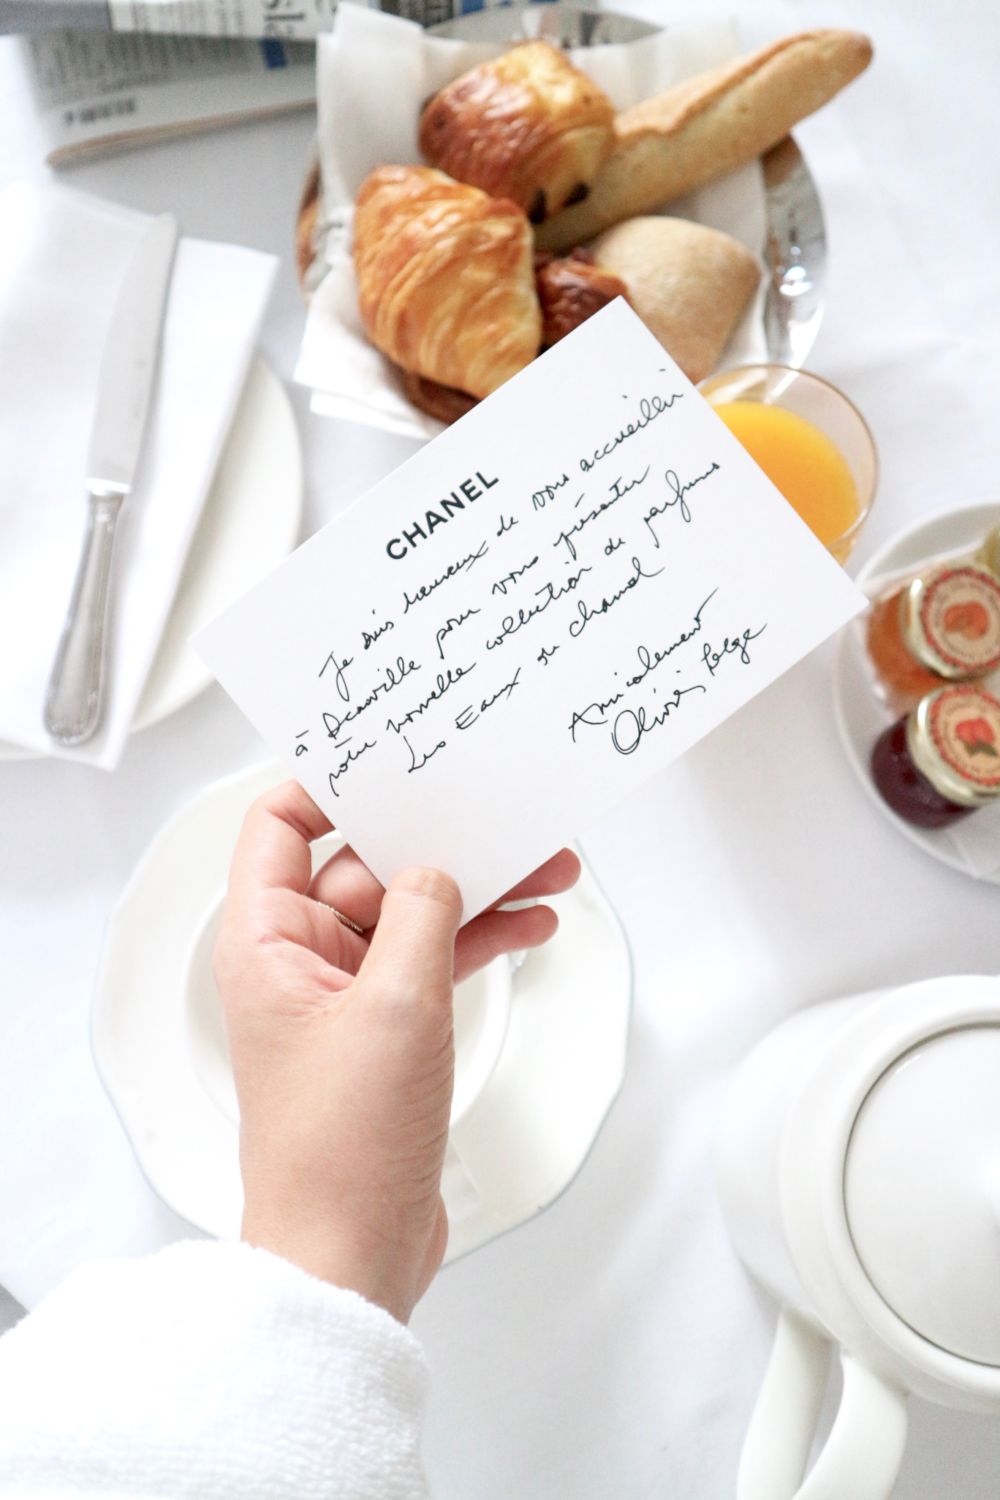 CHANEL
Je suis heureux de vous accueillir
à Deauville pour vous présenter
notre nouvelle collection de parfums
Les Eaux de Chanel
Amicalement
Olivier Polge